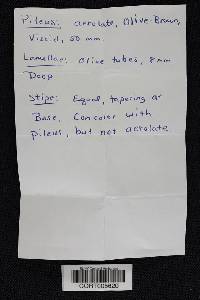 Pileus: areolate, Olive-Brown,
Viscid, 50 mm.
Lamellae: Olive tubes, 8mm
Deep
Stipe: Equal, tapering at
Base. Concolor with
pileus, but not areolate